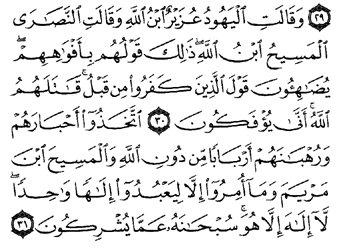 ٢٩ وَقَالَتِ ٱلْيَهُودُ عُزَيْرٌ ٱبْنُ ٱللَّهِ وَقَالَتِ ٱلنَّصَـٰرَى
ٱلْمَسِيحُ ٱبْنُ ٱللَّهِ ۖ ذَٰلِكَ قَوْلُهُم بِأَفْوَٰهِهِمْ ۖ
يُضَـٰهِـُٔونَ قَوْلَ ٱلَّذِينَ كَفَرُوا۟ مِن قَبْلُ ۚ قَـٰتَلَهُمُ
ٱللَّهُ ۚ أَنَّىٰ يُؤْفَكُونَ ٣٠ ٱتَّخَذُوٓا۟ أَحْبَارَهُمْ
وَرُهْبَـٰنَهُمْ أَرْبَابًا مِّن دُونِ ٱللَّهِ وَٱلْمَسِيحَ ٱبْنَ
مَرْيَمَ وَمَآ أُمِرُوٓا۟ إِلَّا لِيَعْبُدُوٓا۟ إِلَـٰهًا وَٰحِدًا ۖ
لَّآ إِلَـٰهَ إِلَّا هُوَ ۚ سُبْحَـٰنَهُۥ عَمَّا يُشْرِكُونَ ٣١